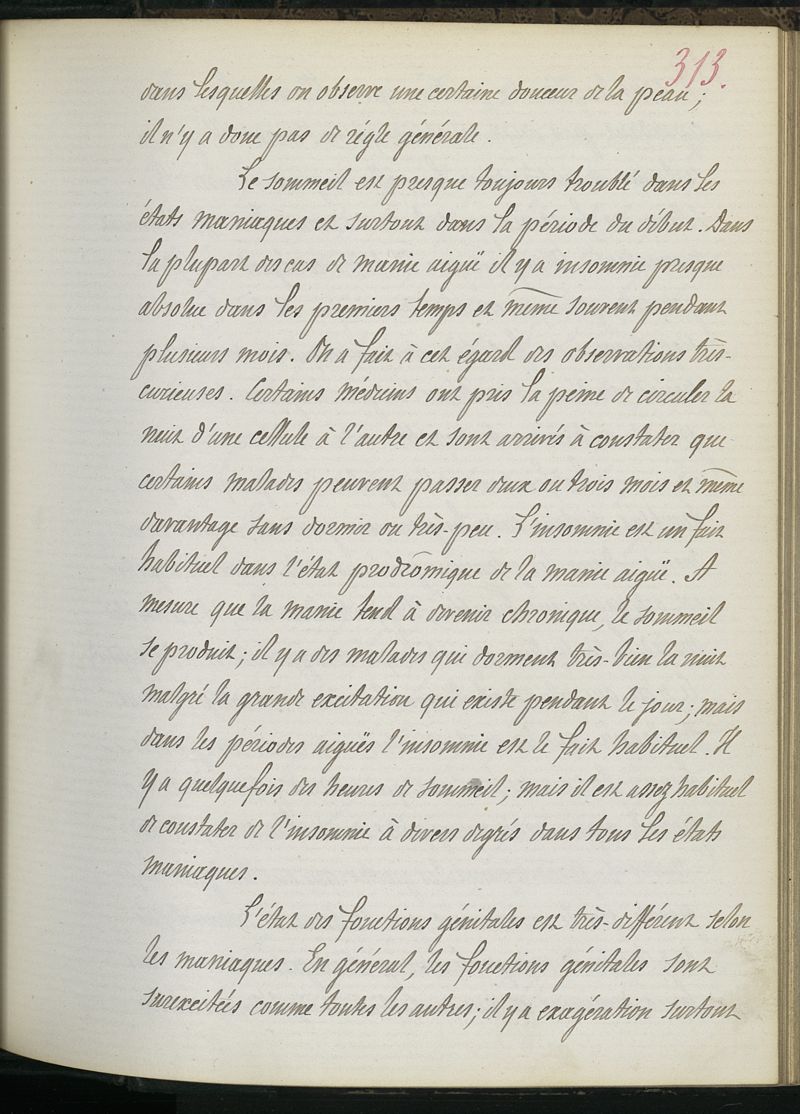 313.
dans lesquelles on observe une certaine douceur de la peau ;
il n'y a donc pas de règle générale.
Le sommeil est presque toujours troublé dans les
états maniaques et surtout dans la période du début. Dans
la plupart des cas de manie aiguë il y a insomnie presque
absolue dans les premiers temps et même souvent pendant
plusieurs mois. On a fait à cet égard des observations très-
curieuses. Certains médecins ont pris la peine de circuler la
nuit d'une cellule à l'autre et sont arrivés à constater que
certains malades peuvent passer deux ou trois mois et même
davantage sans dormir ou très-peu. L'insomnie est un fait
habituel dans l'état prodrômique de la manie aiguë. A
mesure que la manie tend à devenir chronique, le sommeil
se produit ; il y a des malades qui dorment très-bien la nuit
malgré la grande excitation qui existe pendant le jour ; mais
dans les périodes aiguës l'insomnie est le fait habituel. Il
y a quelquefois des heures de sommeil ; mais il est assez habituel
de constater de l'insomnie à divers degrés dans tous les états
maniaques.
L'état des fonctions génitales est très-différent selon
les maniaques. En général, les fonctions génitales sont
surexcitées comme toutes les autres ; il y a exagération surtout